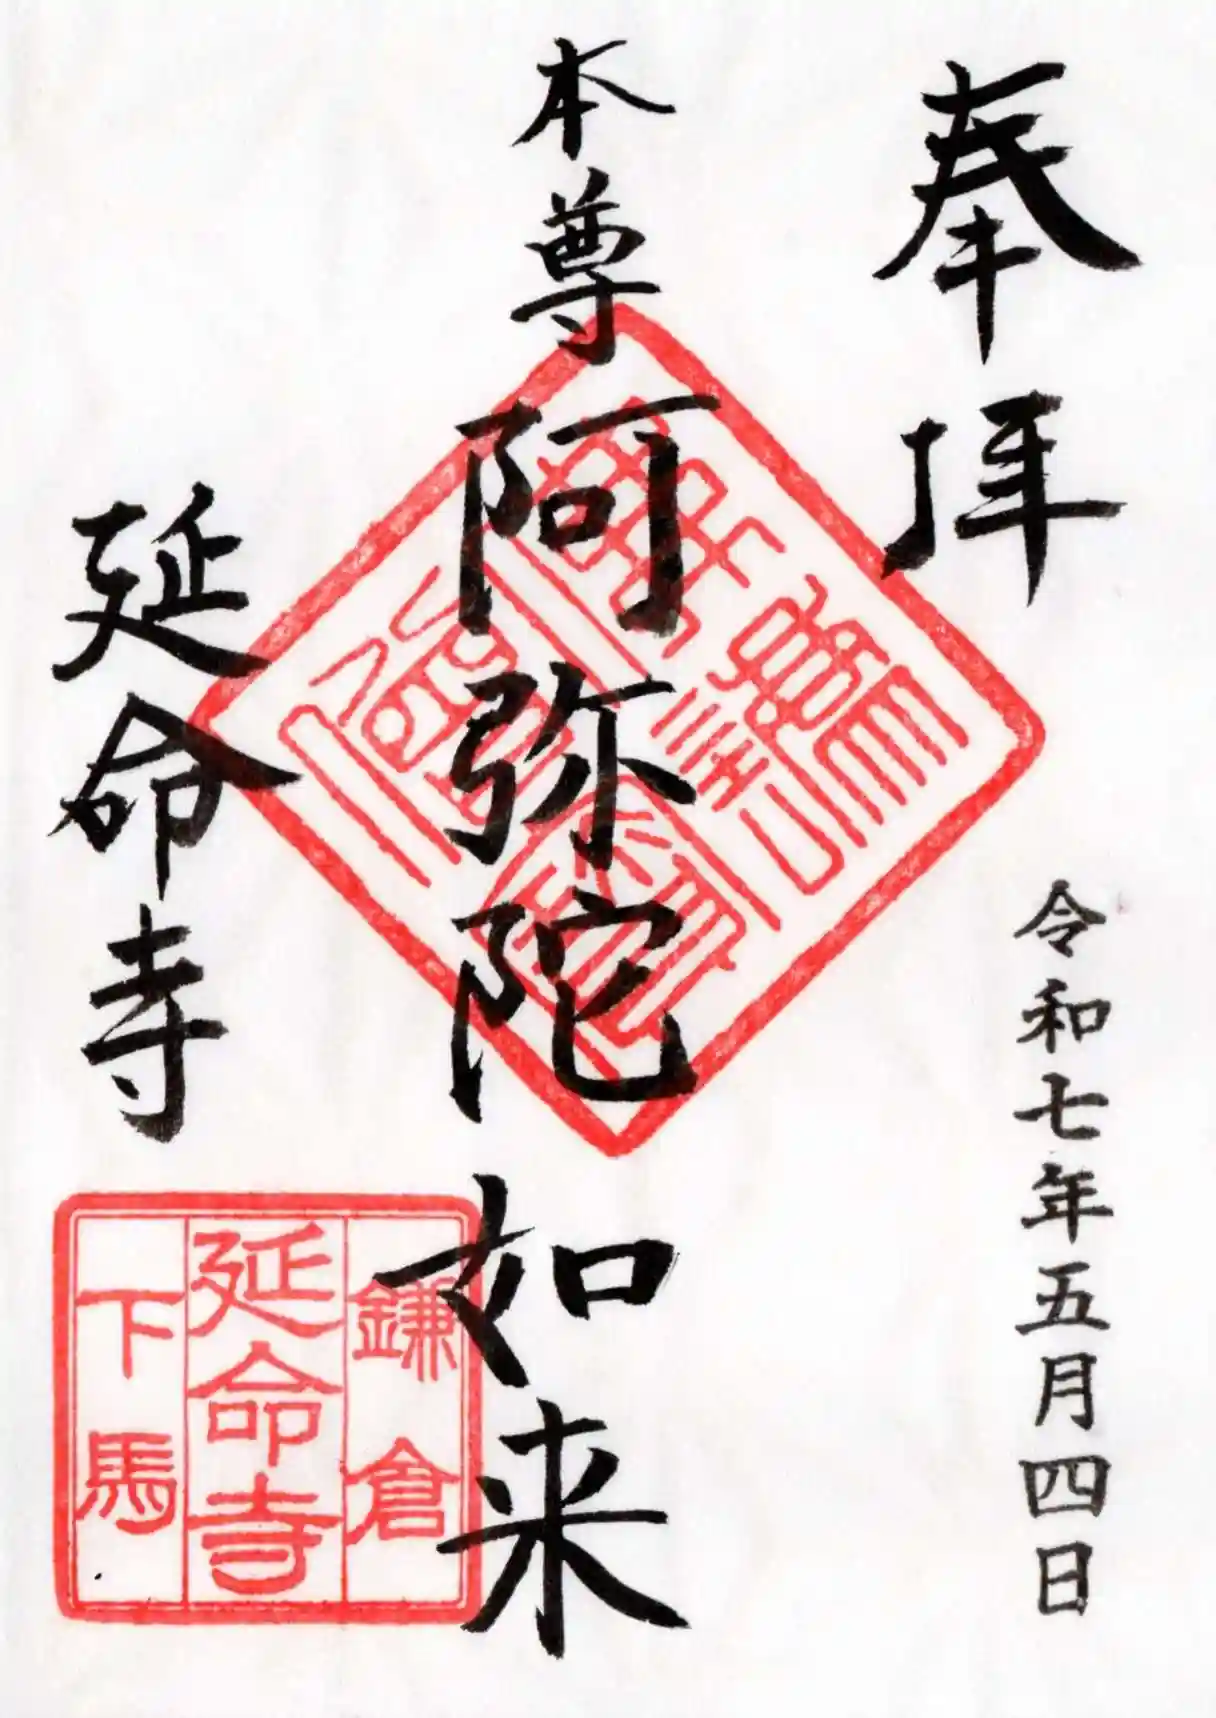 奉拝
令和七年五月四日
本尊阿弥陀如来
延命寺
鎌倉
延命寺
下馬